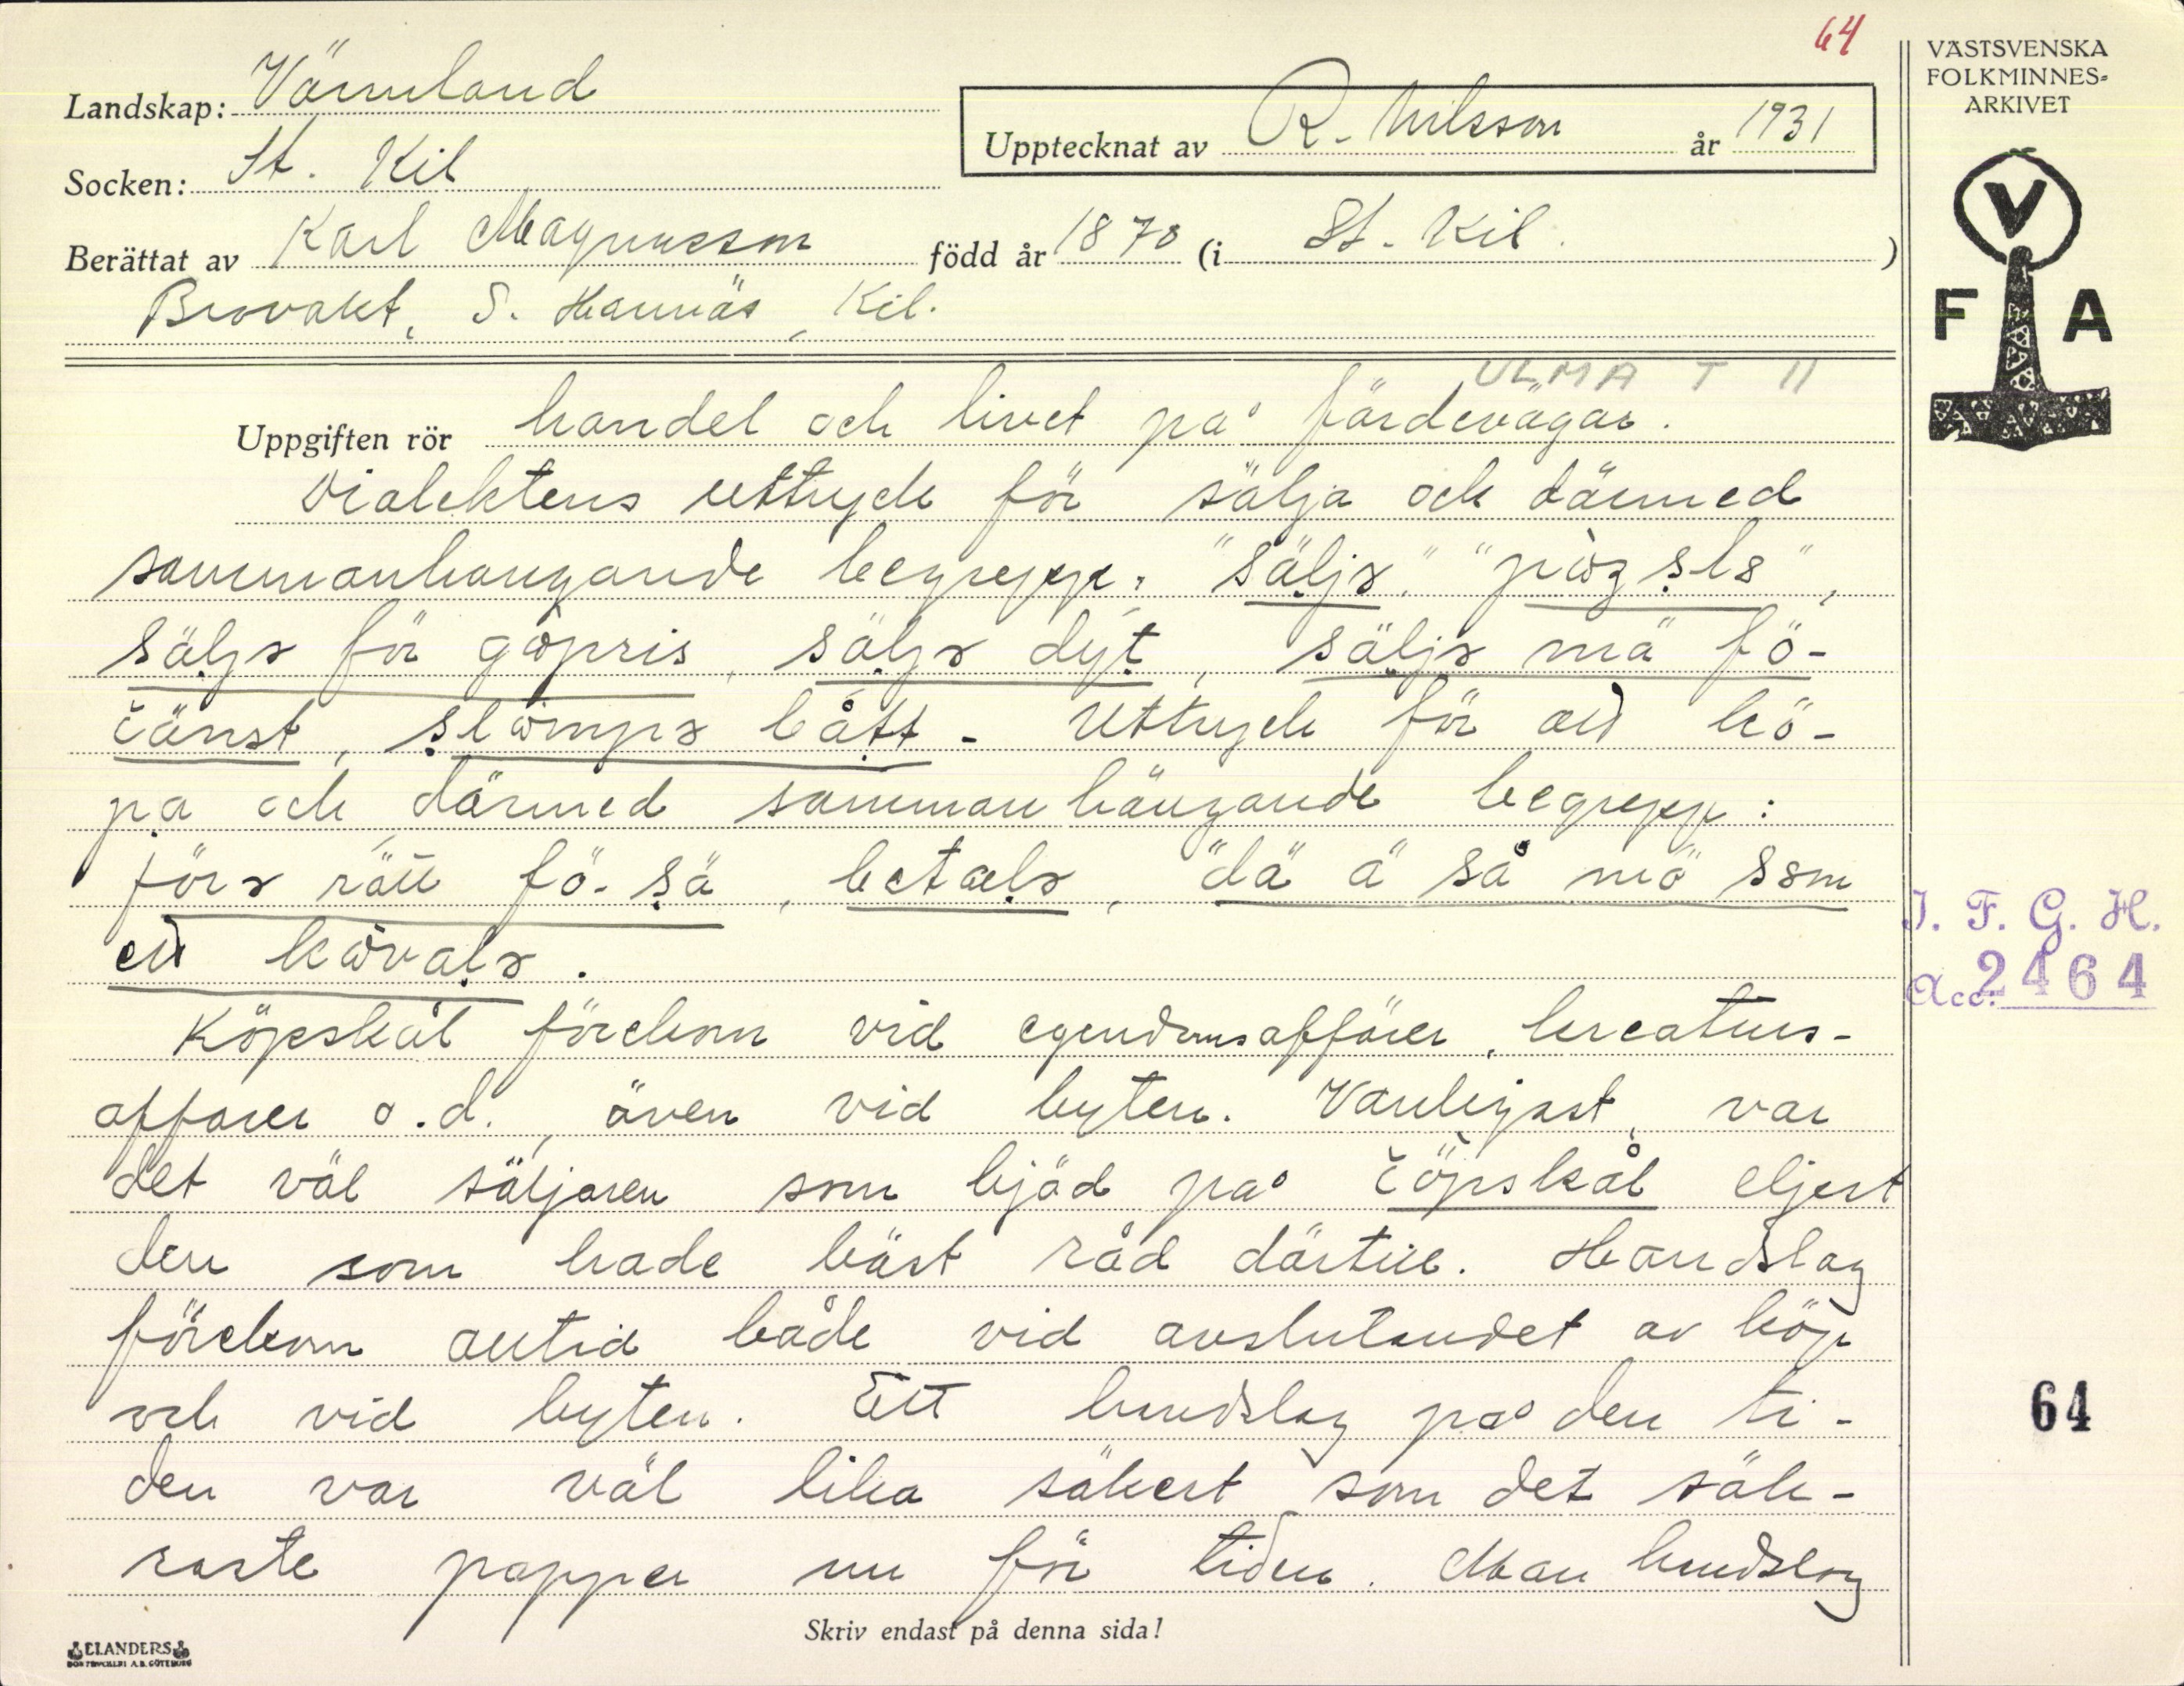 64
VÄSTSVENSKA
FOLKMINNES-
ARKIVET
Landskap: Värmland
Upptecknat av R. Nilsson år 1931
Socken: St. Kil
Berättat av Karl Magnusson född år 1870 (i St. Kil. )
Brovakt, S. Hannäs, Kil.
V
F A
ULMA T 11
Uppgiften rör handel och livet på färdevägar.
Dialektens uttryck för sälja och därmed
sammanhangande begrepp: "säljɤ", "
säljɤ för gopris, säljɤ dyt, säljɤ mä fö-
čänst, slompɤ bått - Uttryck för att kö-
pa och därmed sammanhängande begrepp:
jörɤ rätt fö. sä, betalɤ, "dä ä så mö ssm
ett kovalɤ.
Köpskål förekom vid egendomsaffärer, kreaturs-
affärer o.d., även vid byten. Vanligast, var
det väl säljaren som bjöd på čöpskål eljest
den som hade bäst råd därtill. Handslag
förekom alltid både vid avslutandet av köp
och vid byten. Ett handslag på den ti-
den var väl lika säkert som det säk-
raste papper nu för tiden. Man handslog
J. F. G. H.
Acc. 2464
64
Skriv endast på denna sida!
ELANDERS
BOKTRYCKERI A.B. GÖTEBORG